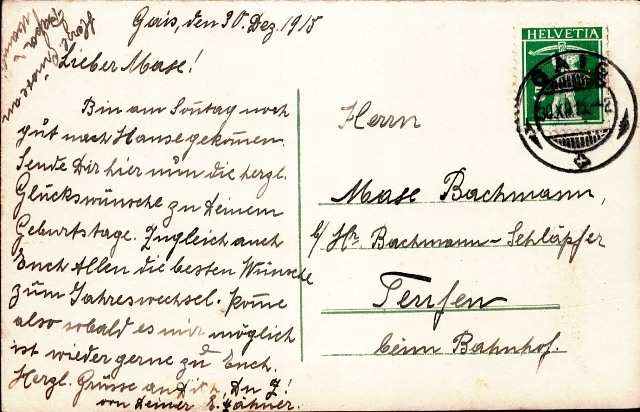 Gais, den 30. Dez. 1915
Lieber Maxe!
Bin am Sontag noch
gut nach Hause gekommen.
Sende Dir hier nun die herzl.
Glückswünsche zu Deinem
Geburtstage. Zugleich auch
Euch Allen die besten Wünsche
zum Jahreswechsel. Kome
also sobald es mir möglich
ist wieder gerne zu Euch.
Herzl. Grüsse an Dich,
von Deiner E.
HELVETIA
GAIS
Herrn
Maxe Bachmann,
b/ Hr. Bachmann-Schläpfer
Teufen
beim Bahnhof.